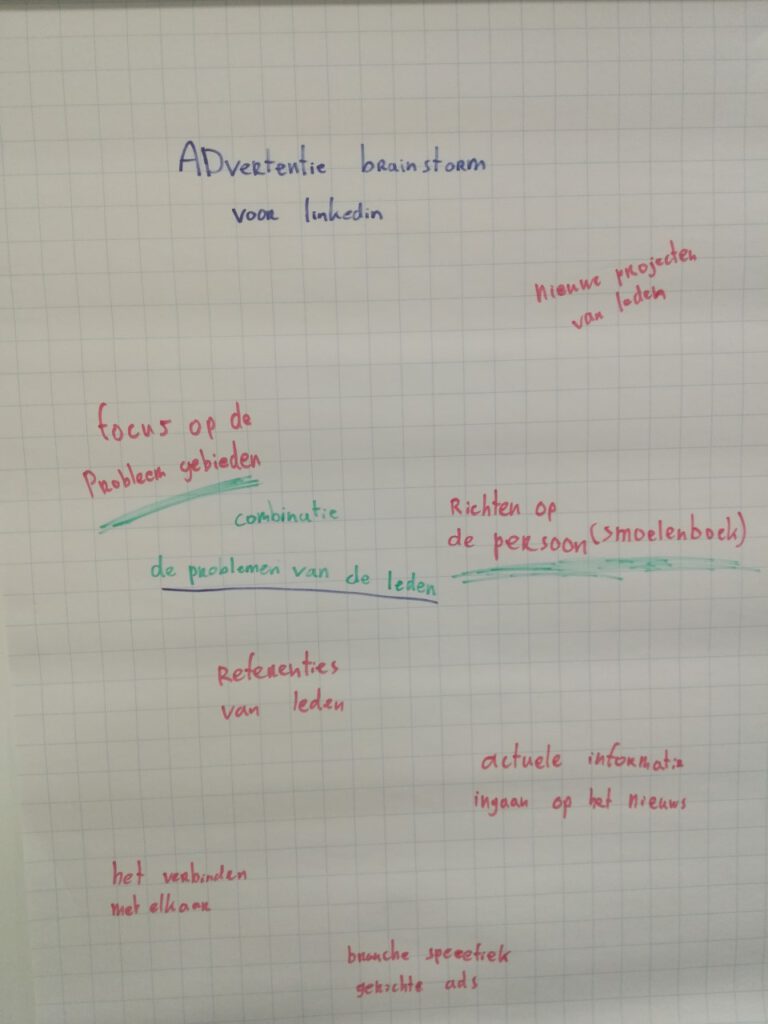 ADvertentie brainstorm
voor linkedin
nieuwe projecten
van leden
focus op de
Probleem gebieden
combinatie
de problemen van de leden
Richten op
de persoon (smoelenboek)
Referenties
van leden
actuele informatie
ingaan op het nieuws
het verbinden
met elkaar
branche specefiek
gerichte ads